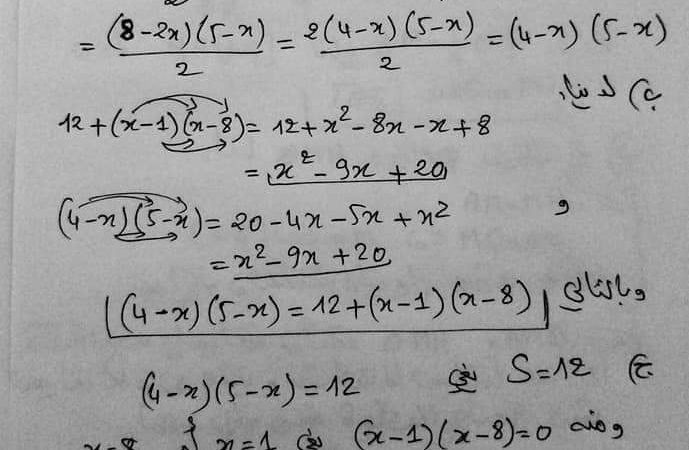 = (8-2x)(5-x)/2 = 2(4-x)(5-x)/2 = (4-x)(5-x)
ب) لدينا:
12+(x-1)(x-8)= 12+x²-8x-x+8
= x²-9x+20
و (4-x)(5-x)= 20-4x-5x+x²
= x²-9x+20
وبالتالي (4-x)(5-x)=12+(x-1)(x-8)
ج) S=12 يعني (4-x)(5-x)=12
ومنه (x-1)(x-8)=0 يعني x=1 x=8